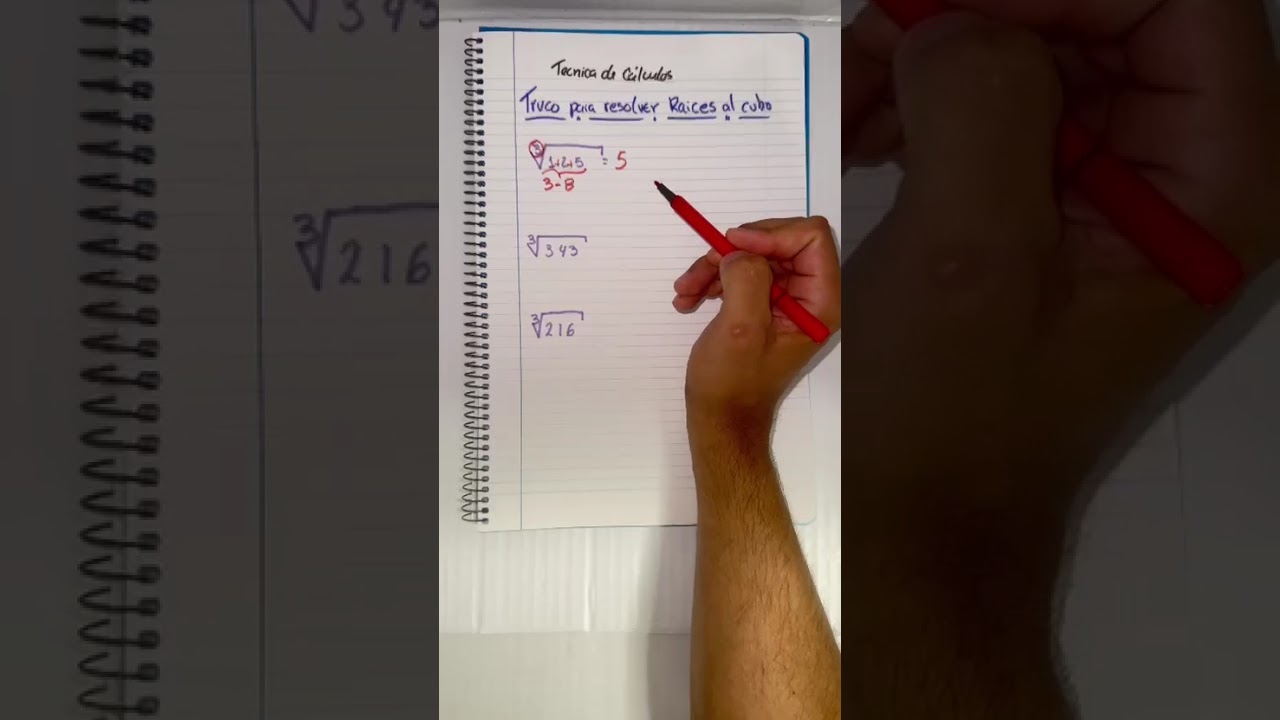 Tecnica de Cálculos
Truco para resolver Raices al cubo
∛1+2+5 = 5
3-8
∛343
∛216
343
∛216